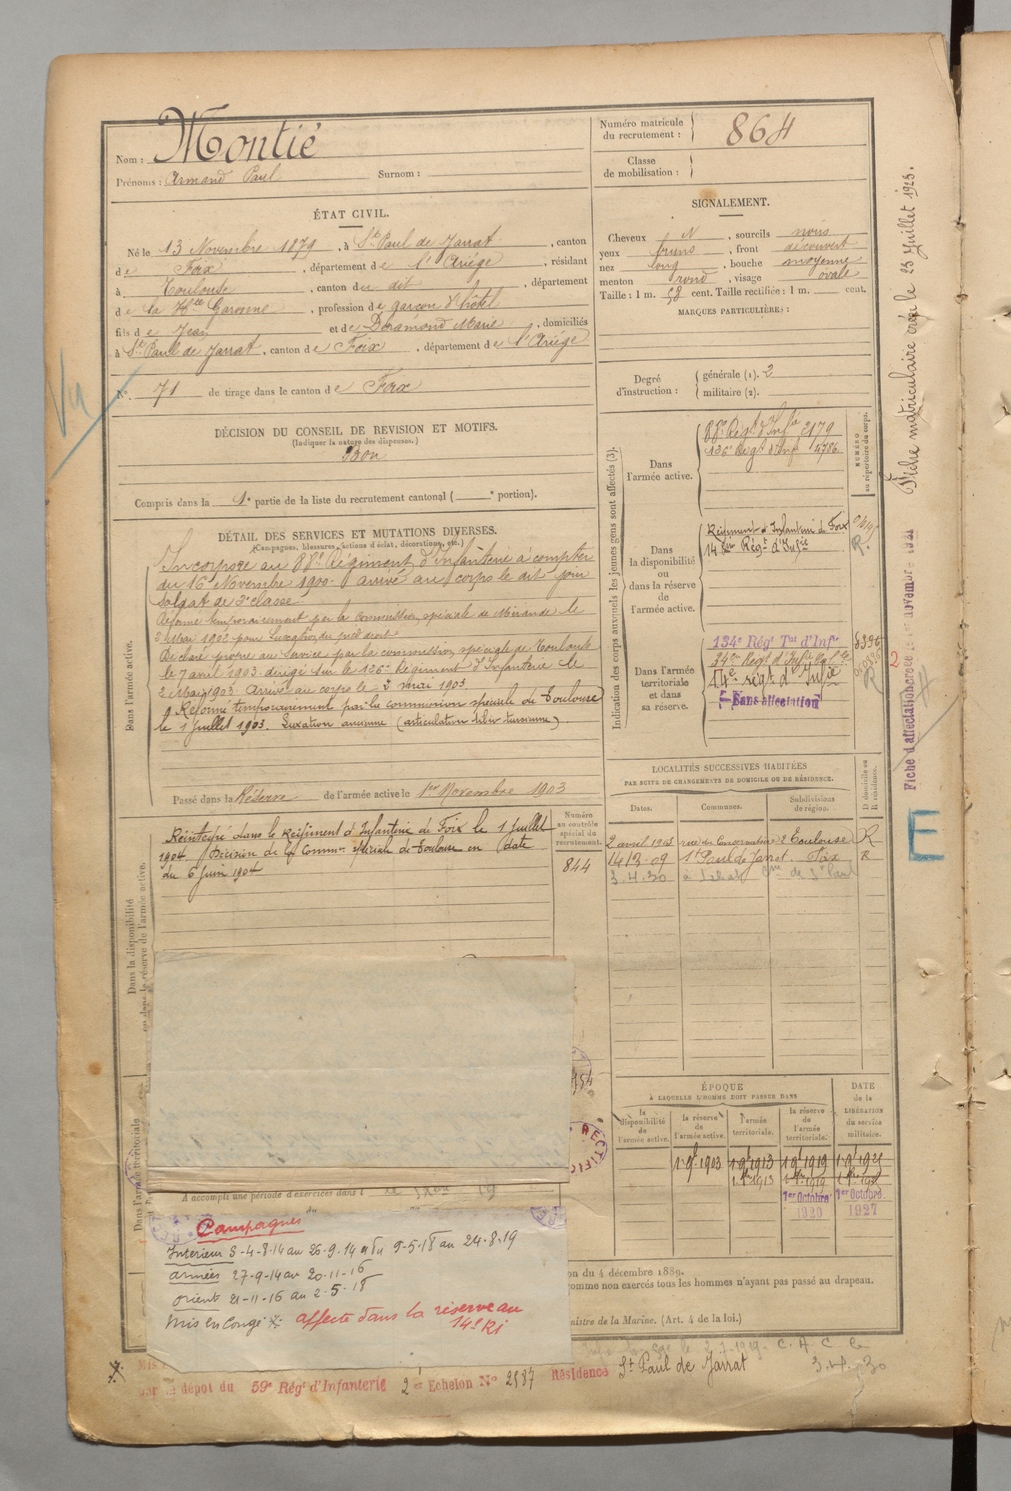 Nom : Montié
Prénoms : Armand Paul Surnom :
Numéro matricule du recrutement : 864
Classe de mobilisation :
ÉTAT CIVIL.
Né le 13 Novembre 1879, à St Paul de Jarrat, canton
de Foix, département de l'Ariège, résidant
à Toulouse, canton du dit, département
de la Hte Garonne, profession de garçon d'hôtel
fils de Jean et de Doramond Marie, domiciliés
à St Paul de Jarrat, canton de Foix, département de l'Ariège
N° 71 de tirage dans le canton de Foix
Vu
DÉCISION DU CONSEIL DE REVISION ET MOTIFS.
(Indiquer la nature des dispenses.)
Bon
Compris dans la 1e partie de la liste du recrutement cantonal ( e portion).
SIGNALEMENT.
Cheveux N, sourcils noirs
yeux bruns, front découvert
nez long, bouche moyenne
menton rond, visage ovale
Taille : 1 m. 58 cent. Taille rectifiée : 1 m. cent.
MARQUES PARTICULIÈRES :
Degré d'instruction : générale (1). 2
militaire (2).
DÉTAIL DES SERVICES ET MUTATIONS DIVERSES.
(Campagnes, blessures, actions d'éclat, décorations, etc.)
Dans l'armée active.
Incorporé au 88e Régiment d'Infanterie à compter
du 16 Novembre 1900. arrivé au corps le dit jour
soldat de 2e classe
Réformé temporairement par la commission spéciale de Mirande le
2 Mai 1902 pour Luxation du pied droit
Déclaré propre au Service par la commission spéciale de Toulouse
le 7 avril 1903. dirigé sur le 126e Régiment d'Infanterie le
2 Mai 1903. Arrivé au corps le 2 mai 1903.
Réformé temporairement par la commission spéciale de Toulouse
le 1 Juillet 1903. Luxation ancienne (articulation tibio tarsienne).
Passé dans la Réserve de l'armée active le 1er Novembre 1903
Dans la disponibilité ou dans la réserve de l'armée active.
Réintégré dans le Régiment d'Infanterie de Foix le 1 Juillet
1904. Décision de la Common spéciale de Toulouse en date
du 6 Juin 1904
Numéro au contrôle spécial du recrutement.
844
Indication des corps auxquels les jeunes gens sont affectés (3).
NUMÉRO au répertoire du corps.
Dans l'armée active.
88e Régt d'Infie 2179
126e Régt d'Inf 4786
Dans la disponibilité ou dans la réserve de l'armée active.
Régiment d'Infanterie de Foix
14 Régt d'Infie
R.
Dans l'armée territoriale et dans sa réserve.
134e Régt Tal d'Infie
14e régt d'Infie
R
Sans affectation
LOCALITÉS SUCCESSIVES HABITÉES
PAR SUITE DE CHANGEMENTS DE DOMICILE OU DE RÉSIDENCE.
Dates. Communes. Subdivisions de région. D domicile ou R résidence.
2 avril 1903 rue du Conservatoire 2 Toulouse R
14/3.09 St Paul de Jarrat. Foix R
3.4.30
ÉPOQUE
À LAQUELLE L'HOMME DOIT PASSER DANS
la disponibilité de l'armée active.
la réserve de l'armée active.
l'armée territoriale.
la réserve de l'armée territoriale.
DATE de la LIBÉRATION du service militaire.
1 9bre 1903 1 9bre 1913 1 9bre 1919
1er Octobre 1920 1er Octobre 1927
Dans l'armée territoriale
A accompli une période d'exercices dans l
RECTIFIC
Campagnes
Intérieur 3-4-8-14 au 26-9-14 et du 9-5-18 au 24-8-19
armées 27-9-14 au 20-11-16
orient 21-11-16 au 2-5-18
Mis en congé affecté dans la réserve au
14e RI
on du 4 décembre 1889.
omme non exercés tous les hommes n'ayant pas passé au drapeau.
nistre de la Marine. (Art. 4 de la loi.)
par le dépôt du 59e Régt d'Infanterie 2e Echelon N° 2587 Résidence St Paul de Jarrat
3.4.30
Fiche matriculaire créée le 23 Juillet 1923.
Fiche d'affectation créée le 1er novembre 1921
E